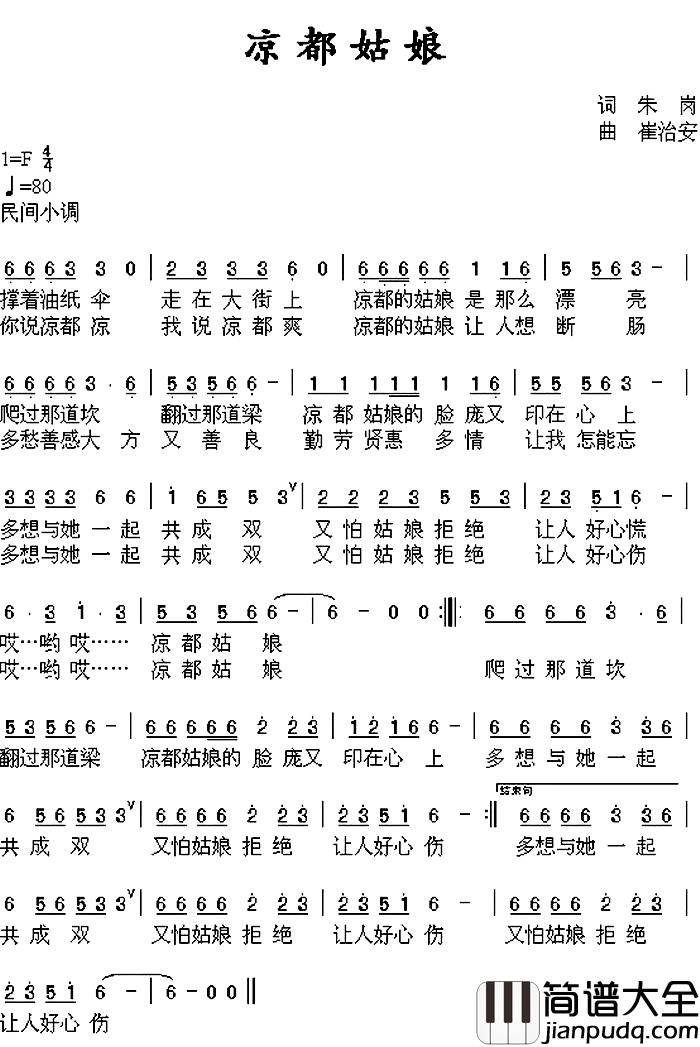 凉都姑娘
词 朱 岗
曲 崔治安
1=F 4/4
♩=80
民间小调
6 6 6 3 3 0 | 2 3 3 3 6 0 | 6 6 6 6 6 1 1 6 | 5 5 6 3 – |
撑着油纸伞 走在大街上 凉都的姑娘是那么漂 亮
你说凉都凉 我说凉都爽 凉都的姑娘让人想断 肠
6 6 6 6 3 · 6 | 5 3 5 6 6 – | 1 1 1 1 1 1 1 6 | 5 5 5 6 3 – |
爬过那道坎 翻过那道梁 凉都姑娘的脸庞又 印在心上
多愁善感大方 又善良 勤劳贤惠多情 让我怎能忘
3 3 3 3 6 6 | 1 6 5 5 3 V | 2 2 2 3 5 5 3 | 2 3 5 1 6 – |
多想与她一起 共成双 又怕姑娘拒绝 让人好心慌
多想与她一起 共成双 又怕姑娘拒绝 让人好心伤
6 · 3 1 · 3 | 5 3 5 6 6 – | 6 – 0 0 :‖: 6 6 6 6 3 · 6 |
哎…哟哎…… 凉都姑 娘
哎…哟哎…… 凉都姑 娘 爬过那道坎
5 3 5 6 6 – | 6 6 6 6 6 2 2 3 | 1 2 1 6 6 – | 6 6 6 6 3 3 6 |
翻过那道梁 凉都姑娘的脸庞又 印在心上 多想与她一起
结束句
6 5 6 5 3 3 V | 6 6 6 6 2 2 3 | 2 3 5 1 6 – :‖ 6 6 6 6 3 3 6 |
共成双 又怕姑娘拒绝 让人好心伤 多想与她一起
6 5 6 5 3 3 V | 6 6 6 6 2 2 3 | 2 3 5 1 6 – | 6 6 6 6 2 2 3 |
共成双 又怕姑娘拒绝 让人好心伤 又怕姑娘拒绝
2 3 5 1 6 – | 6 – 0 0 ‖
让人好心伤
简谱大全
jianpudq.com